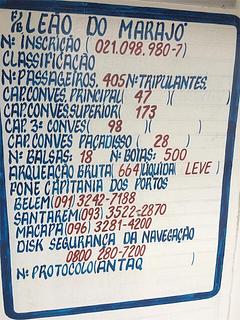 F/B LEÃO DO MARAJO
Nº INSCRIÇÃO ( 021.098.980-7)
CLASSIFICAÇÃO
Nº PASSAGEIROS. 405 Nº TRIPULANTES.
CAP. CONVES. PRINCIPAL( 47 )( )
CAP. CONVES. SUPERIOR( 173
CAP. 3º CONVES ( 98 )( )
CAP. CONVES PAÇADISSO ( 28 )
Nº BALSAS: 18 Nº BOIAS: 500
ARQUEAÇÃO BRUTA( 664 )LIQUIDA( LEVE )
FONE CAPITANIA DOS PORTOS
BELEM(091) 3242-7188
SANTAREM(093) 3522-2870
MACAPA(096) 3281-4200
DISK SEGURANÇA DA NAVEGAÇÃO
0800 280-7200
Nº PROTOCOLO(ANTAQ )